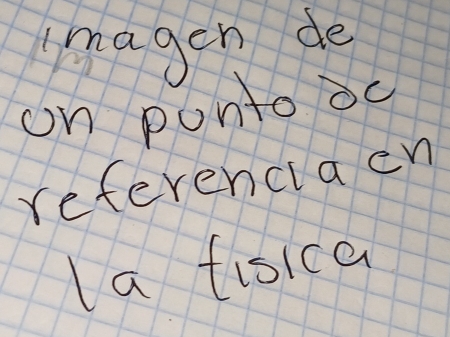 imagen de
un punto de
referencia en
la fisica